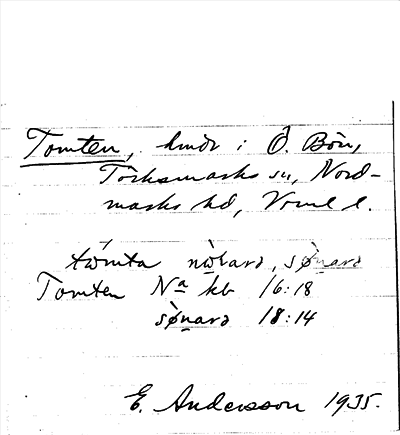 Tomten, hmdr i Ö. Bön,
Törksmarks sn, Nord-
marks hd, Vrml l.
tòmta nòlarə, sø̀narə
Tomten Na kb 16:18
sø̀narə 18:14
E. Andersson 1935.